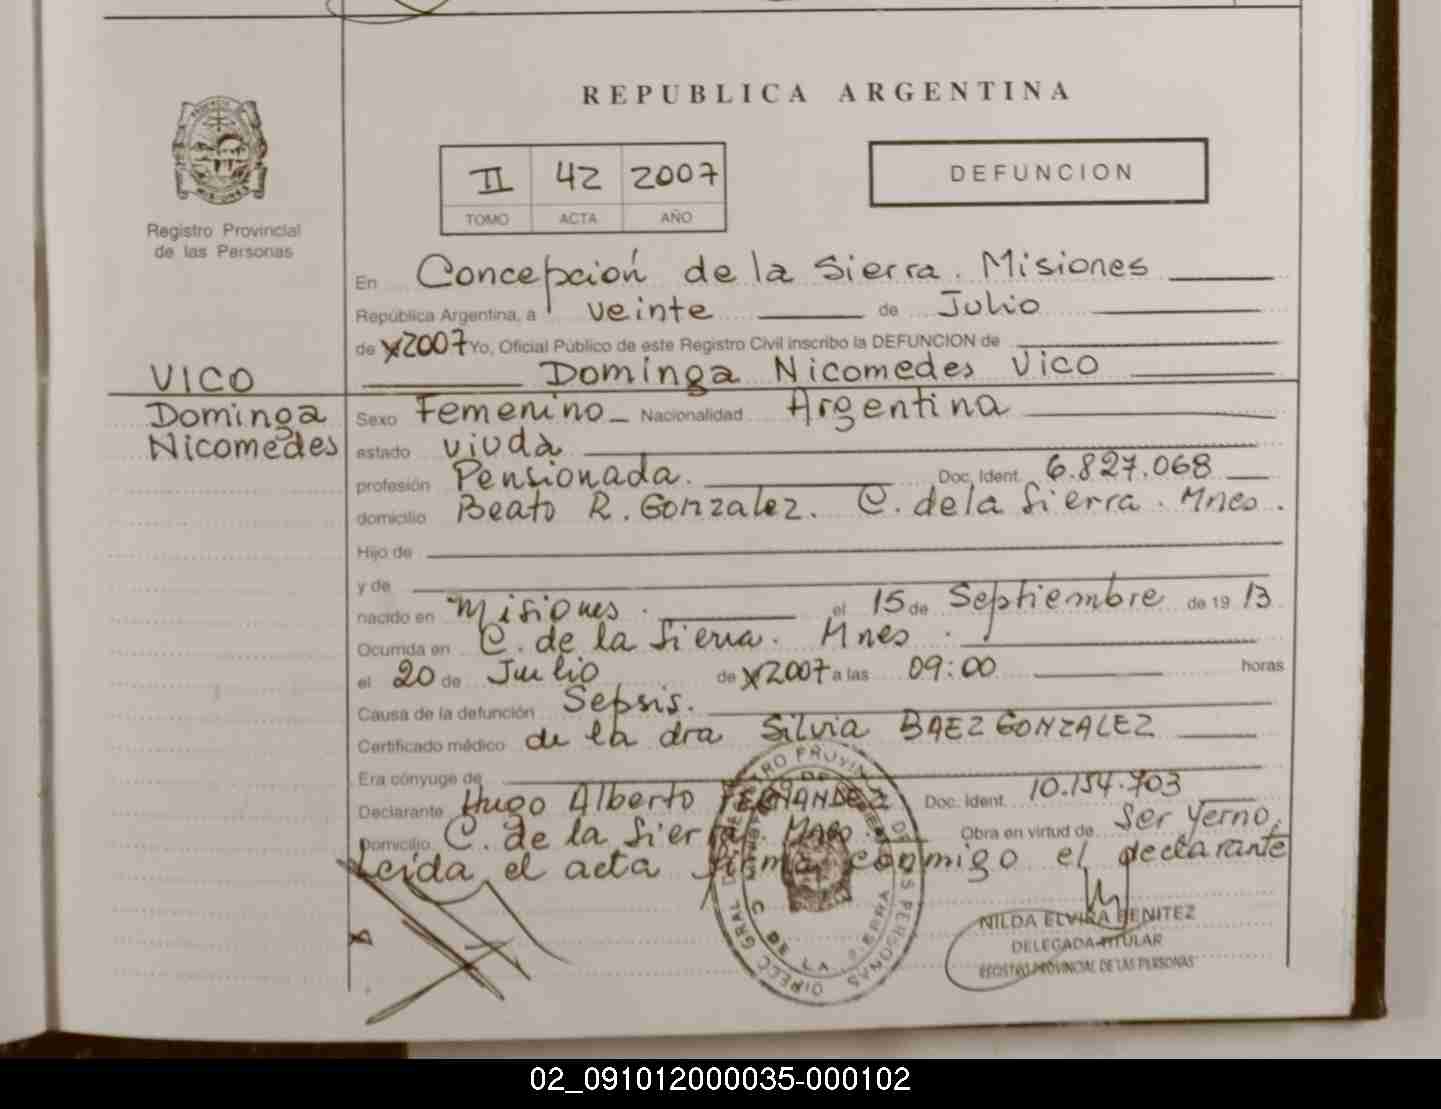 REPUBLICA ARGENTINA
II 42 2007
TOMO ACTA AÑO
DEFUNCION
Registro Provincial
de las Personas
En Concepción de la Sierra. Misiones
República Argentina, a veinte de Julio
de 2007 Yo, Oficial Público de este Registro Civil inscribo la DEFUNCION de
Dominga Nicomedes Vico
VICO
Dominga
Nicomedes
Sexo Femenino Nacionalidad Argentina
estado viuda
profesión Pensionada. Doc. Ident. 6.827.068
domicilio Beato R. Gonzalez. C. de la Sierra. Mnes.
Hijo de
y de
nacido en Misiones. el 15 de Septiembre de 19 13
Ocurrida en C. de la Sierra. Mnes.
el 20 de Julio de 2007 a las 09:00 horas
Causa de la defunción Sepsis.
Certificado médico de la dra Silvia BAEZ GONZALEZ
Era cónyuge de
Declarante Hugo Alberto FERNANDEZ Doc. Ident. 10.154.703
Domicilio C. de la Sierra. Mnes. Obra en virtud de Ser Yerno.
Leida el acta firma conmigo el declarante
NILDA ELVIRA BENITEZ
DELEGADA TITULAR
REGISTRO PROVINCIAL DE LAS PERSONAS
02_091012000035-000102